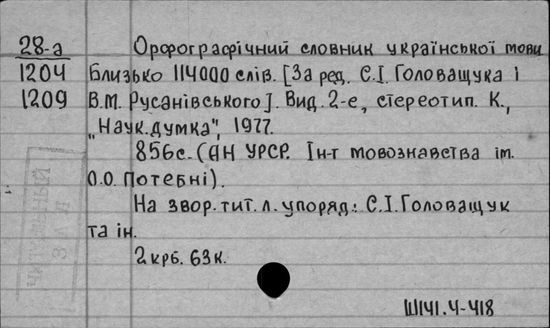 28-а
1204
1209
Орфографічний словник української мови
Близько 114000 слів. [За ред. С.І. Головащука і
В.М. Русанівського]. Вид. 2-е, стереотип. К.,
„Наук. думка", 1977.
856с. (АН УРСР. Ін-т мовознавства ім.
О.О. Потебні).
На звор. тит. л. упоряд.: С.І. Головащук
та ін.
2 крб. 63 к.
Ш141.4-418